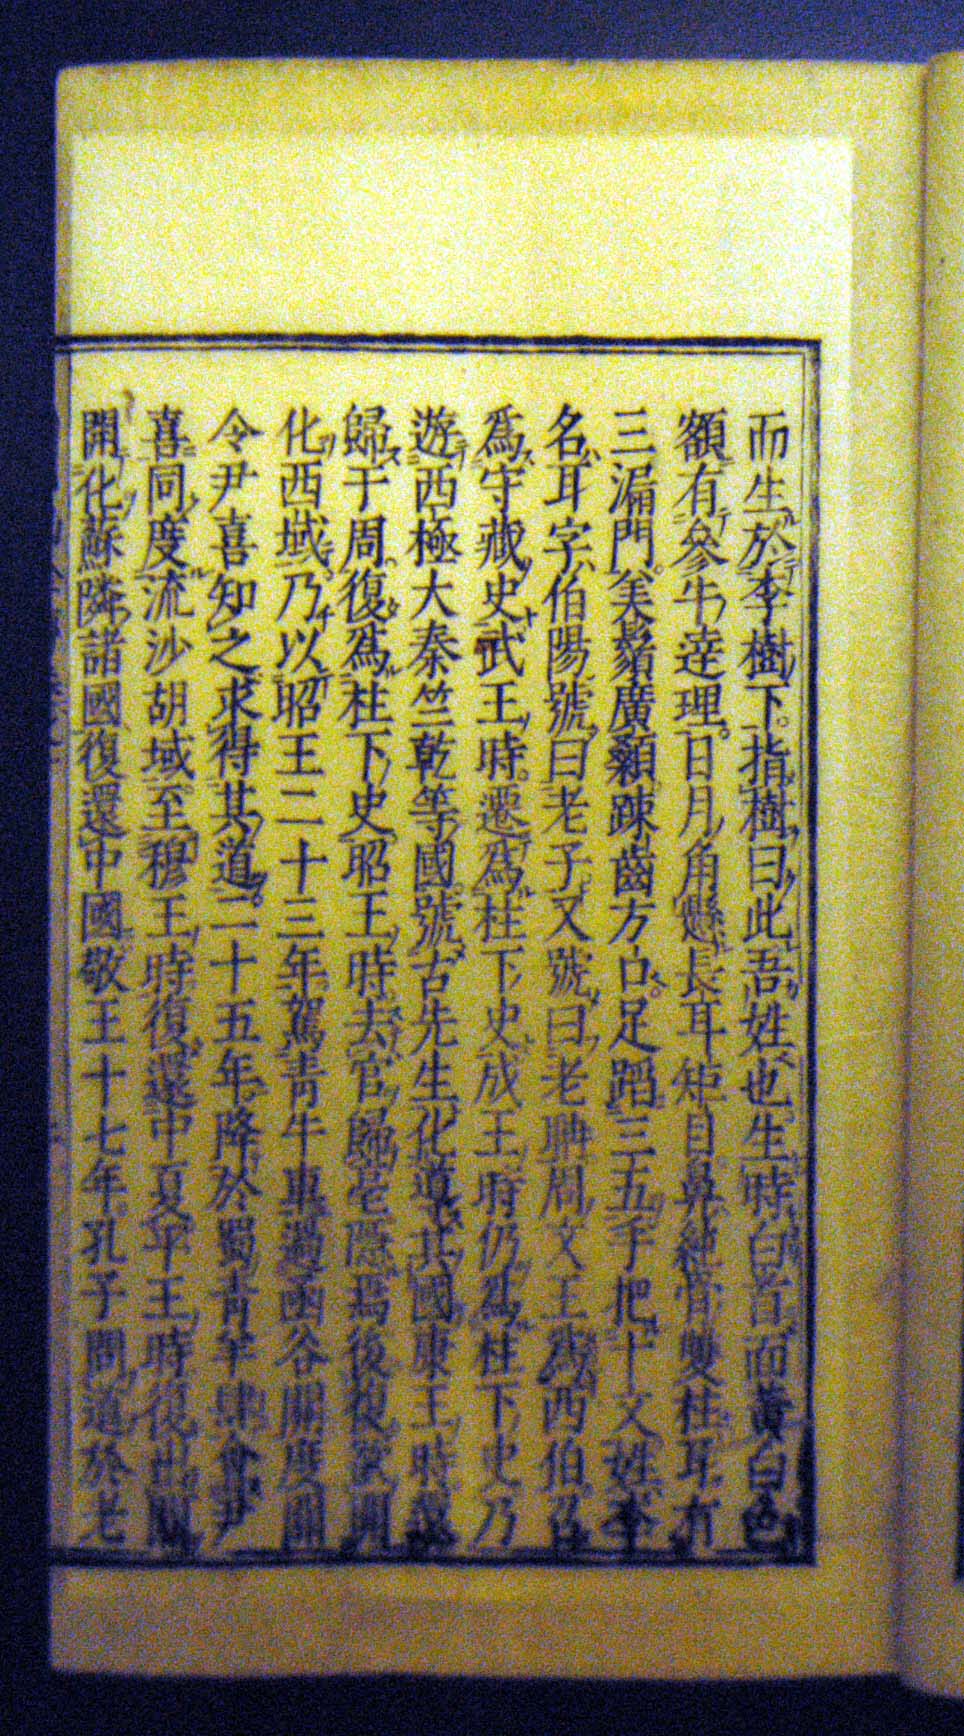 而生於李樹下。指樹曰此吾姓也。生時白首面黃白色
額有參牛達理。日月角懸長耳矩目。鼻純骨雙柱耳有
三漏門。美鬚廣顙。踈齒方口。足蹈三五手把十文。姓李
名耳字伯陽號曰老子又號曰老聃周文王為西伯召
爲守藏史武王時。遷爲柱下史成王時仍爲柱下史乃
遊西極大秦竺乾等國。號古先生化導其國康王時還
歸于周。復爲柱下史昭王時去官歸亳隱焉後復欲開
化西域。乃以昭王二十三年。駕青牛車過函谷關度關
令尹喜知之求得其道。二十五年降於蜀青羊肆會尹
喜同度流沙胡域。至穆王時復還中夏平王時復出關
開化蘇隣諸國復還中國敬王十七年。孔子問道於老